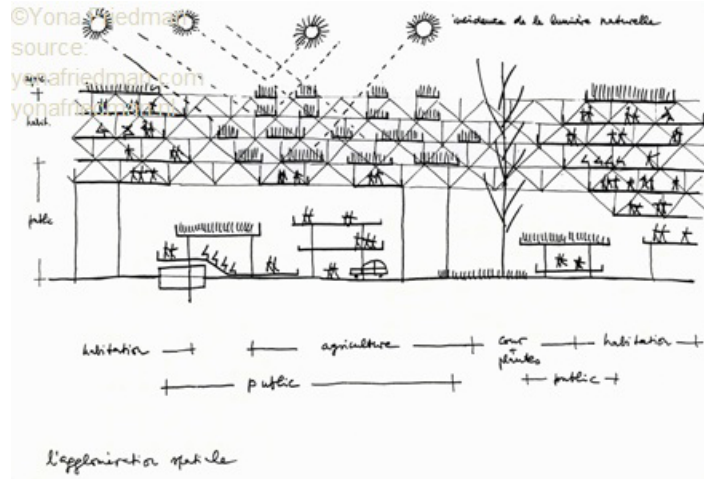 ©Yona Friedman
source:
yonafriedman.com
yonafriedman.nl
incidence de la lumière naturelle
habit.
public
habitation
agriculture
cour + plantes
habitation
public
public
l'agglomération spatiale